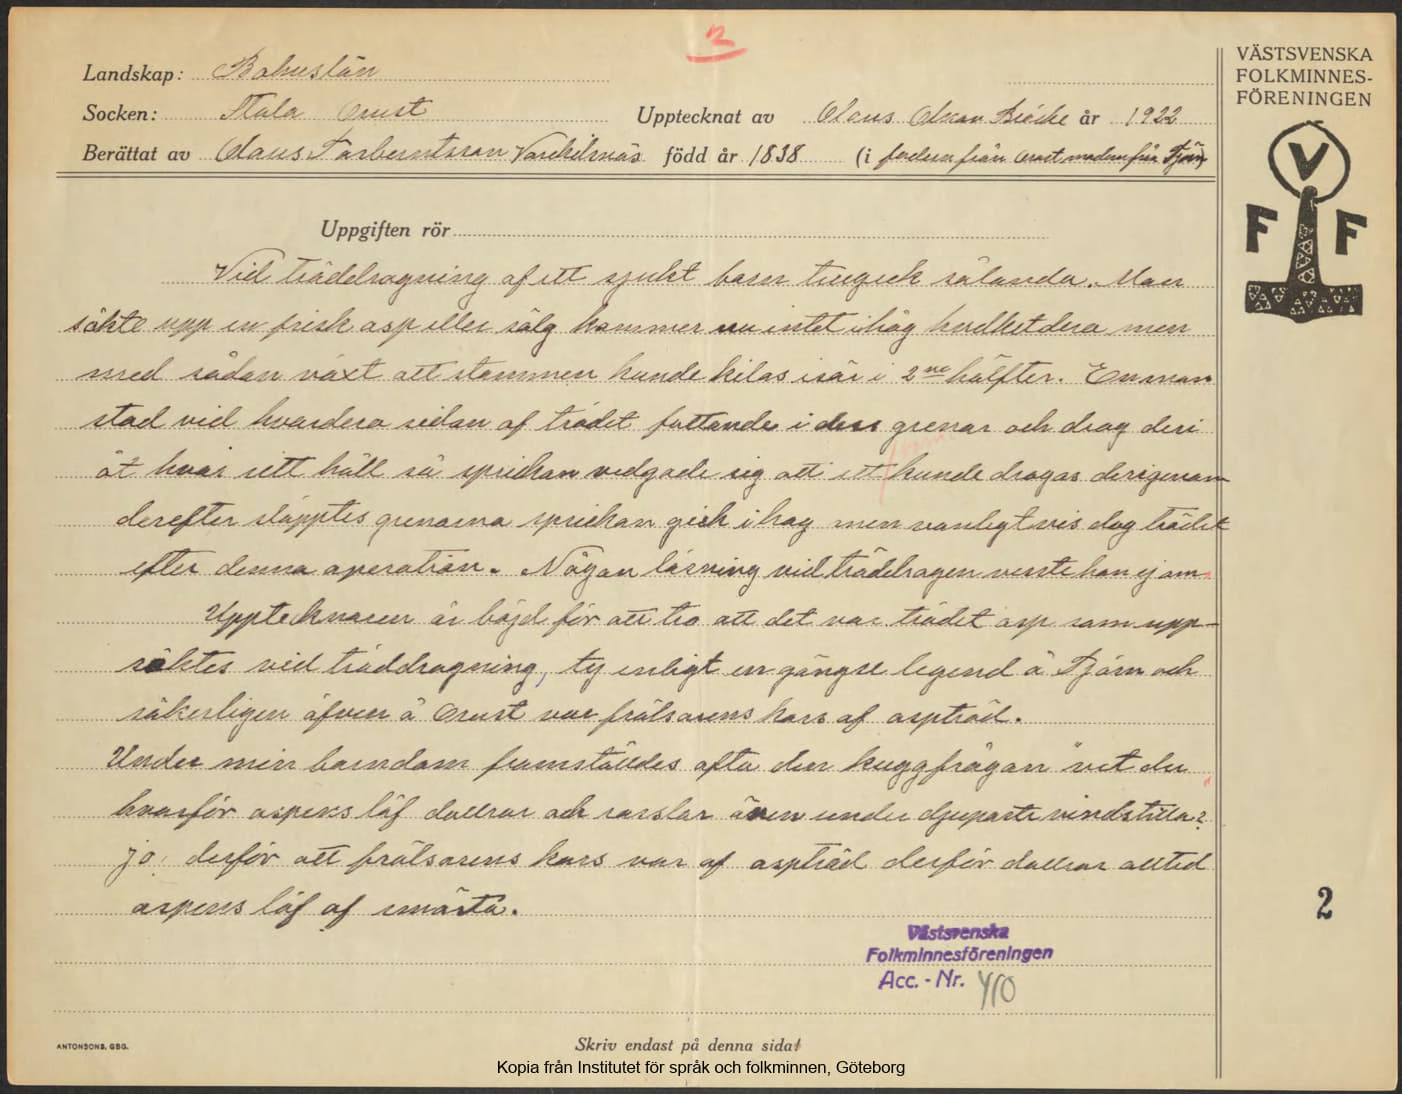 2
Landskap: Bohuslän
Socken: Stala Orust Upptecknat av Olaus Oskar år 1922
Berättat av Olaus Torberntsson Varekilsnäs född år 1838 (i fadren från Orust modren från Tjörn)
VÄSTSVENSKA
FOLKMINNES-
FÖRENINGEN
V
F F
Uppgiften rör
Vid träddragning af ett sjukt barn tillgick sålunda. Man
sökte upp en frisk asp eller sälg kommer nu intet ihåg hvilketdera men
med sådan växt att stammen kunde kilas isär i 2ne hälfter. En man
stod vid hvardera sidan af trädet fattande i dess grenar och drog deri
åt hvar sitt håll så sprickan vidgade sig att ett kunde dragas derigenom
derefter släpptes grenarna sprickan gick ihop men vanligtvis dog trädet
efter denna operation. Någon läsning vid träddragen visste han ej om.
Upptecknaren är böjd för att tro att det var trädet asp som upp-
söktes vid träddragning, ty enligt en gängse legend å Tjörn och
säkerligen äfven å Orust var frälsarens kors af aspträd.
Under min barndom framställdes ofta den kuggfrågan "vet du
hvarför aspens löf dallrar och rasslar även under djupaste vindstilla?
jo, derför att frälsarens kors var af aspträd derför dallrar alltid
aspens löf af smärta.
Västsvenska
Folkminnesföreningen
Acc.-Nr. 410
2
ANTONSONS, GBG.
Skriv endast på denna sida!
Kopia från Institutet för språk och folkminnen, Göteborg